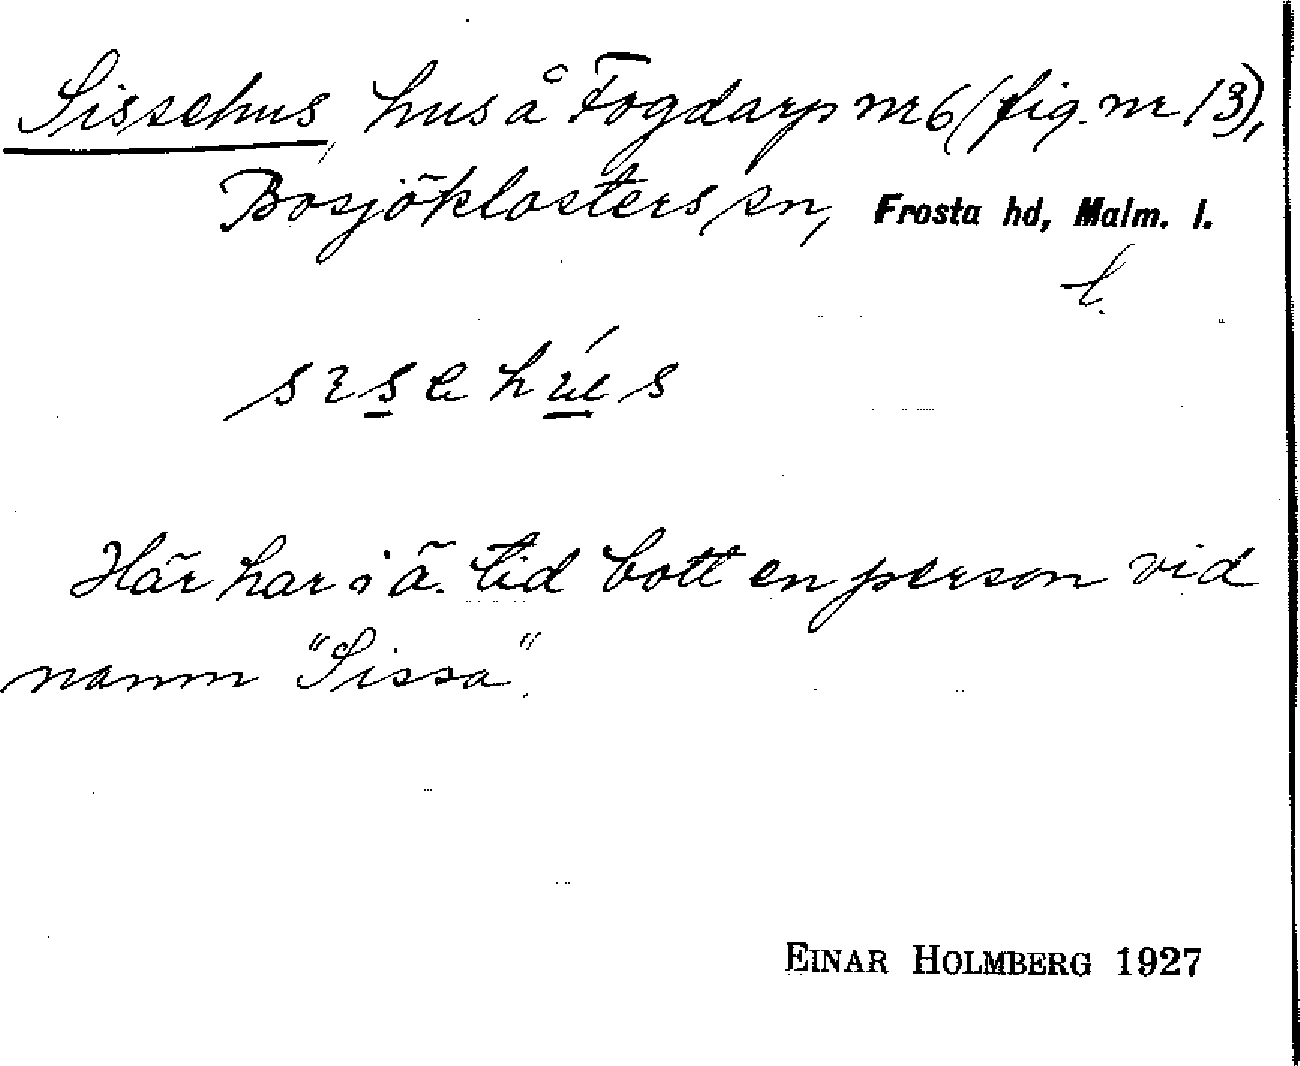 Sissehus, hus å Fogdarp nr 6 (fig. nr 13),
Bosjöklosters sn, Frosta hd, Malm. l.
l.
sısehús
Här har i ä. tid bott en person vid
namn "Sissa".
EINAR HOLMBERG 1927